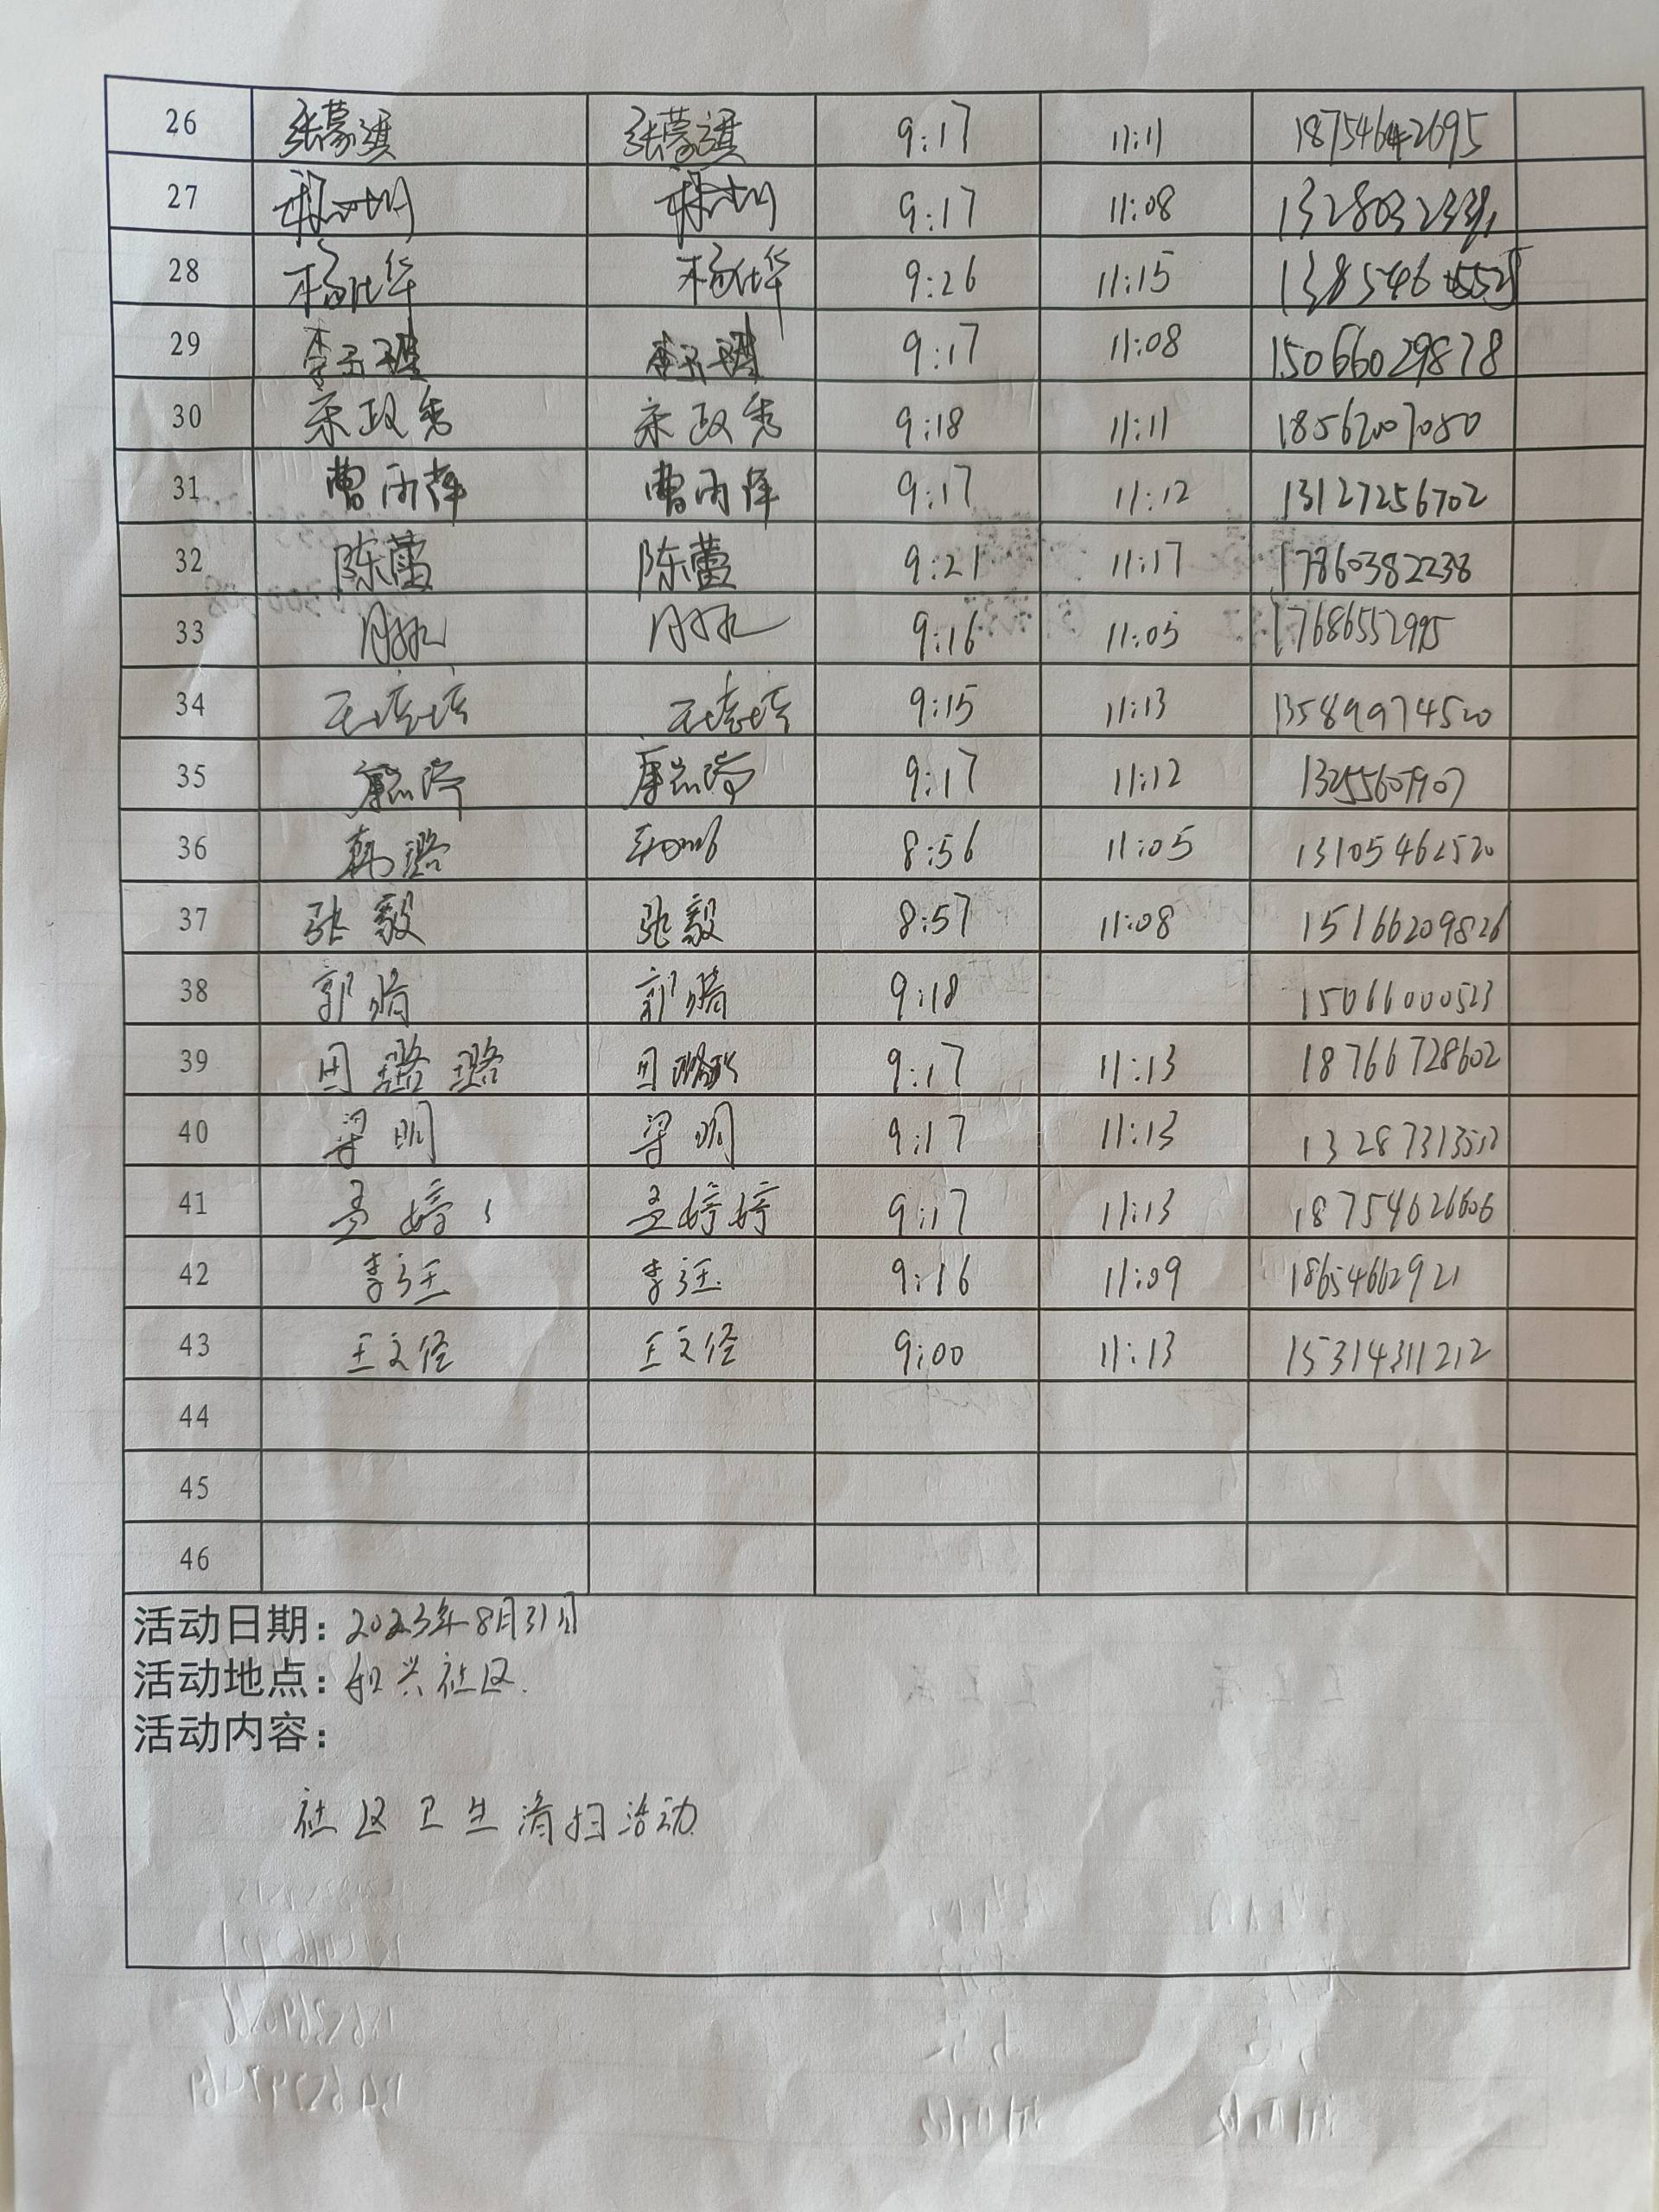 26 张蒙淇 张蒙淇 9:17 11:11 18754642695
27 9:17 11:08
28 杨仕华 杨仕华 9:26 11:15
29 李子璇 李子璇 9:17 11:08 15066029878
30 宋政秀 宋政秀 9:18 11:11 18562007080
31 曹雨萍 曹雨萍 9:17 11:12 13127256702
32 陈蕾 陈蕾 9:21 11:17 17860382238
33 9:16 11:05 17686552995
34 王培培 王培培 9:15 11:13 13589974520
35 9:17 11:12
36 韩璐 8:56 11:05 13105462520
37 张毅 张毅 8:57 11:08 15166209826
38 郭嫱 郭嫱 9:18 15066000523
39 田璐璐 田璐璐 9:17 11:13 18766728602
40 梁明 梁明 9:17 11:13 13287313512
41 孟婷、 孟婷婷 9:17 11:13 18754626606
42 李汪 李汪 9:16 11:09 18654662921
43 王文径 王文径 9:00 11:13 15314311212
44
45
46
活动日期：2023年8月31日
活动地点：和兴社区.
活动内容：
社区卫生清扫活动.